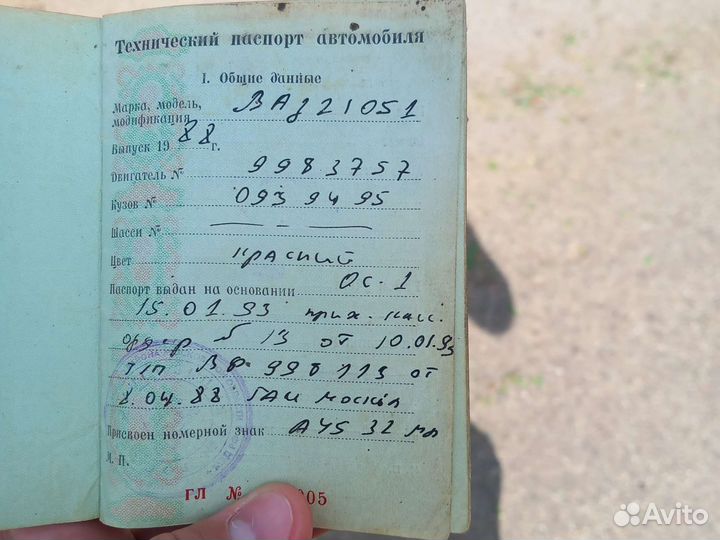 Технический паспорт автомобиля
I. Общие данные
Марка, модель, ВАЗ 21051
модификация
Выпуск 19 88 г.
Двигатель № 9983757
Кузов № 0939495
Шасси № — — —
Цвет красный
Паспорт выдан на основании Ос. 1
15.01.93 прих. касс.
ордер № 13 от 10.01.93
т/п ВФ 998113 от
8.04.88 ГАИ Москва
Присвоен номерной знак А 45 32
М. П.
ГЛ № 005
Avito